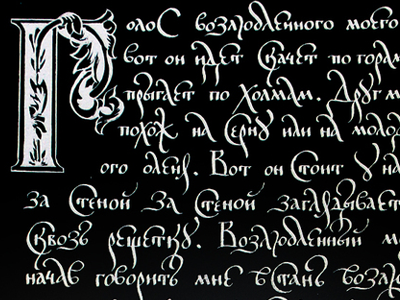 Голос возлюбленного моего
вот он идет Скачет по горам
прыгает по Холмам. Друг м
похож на Серну или на моло
ого оленя. Вот он Стоит у на
за Стеной за Стеной заглядывает
Сквозь решетку. Возлюбленный м
начав говорить мне встань возл